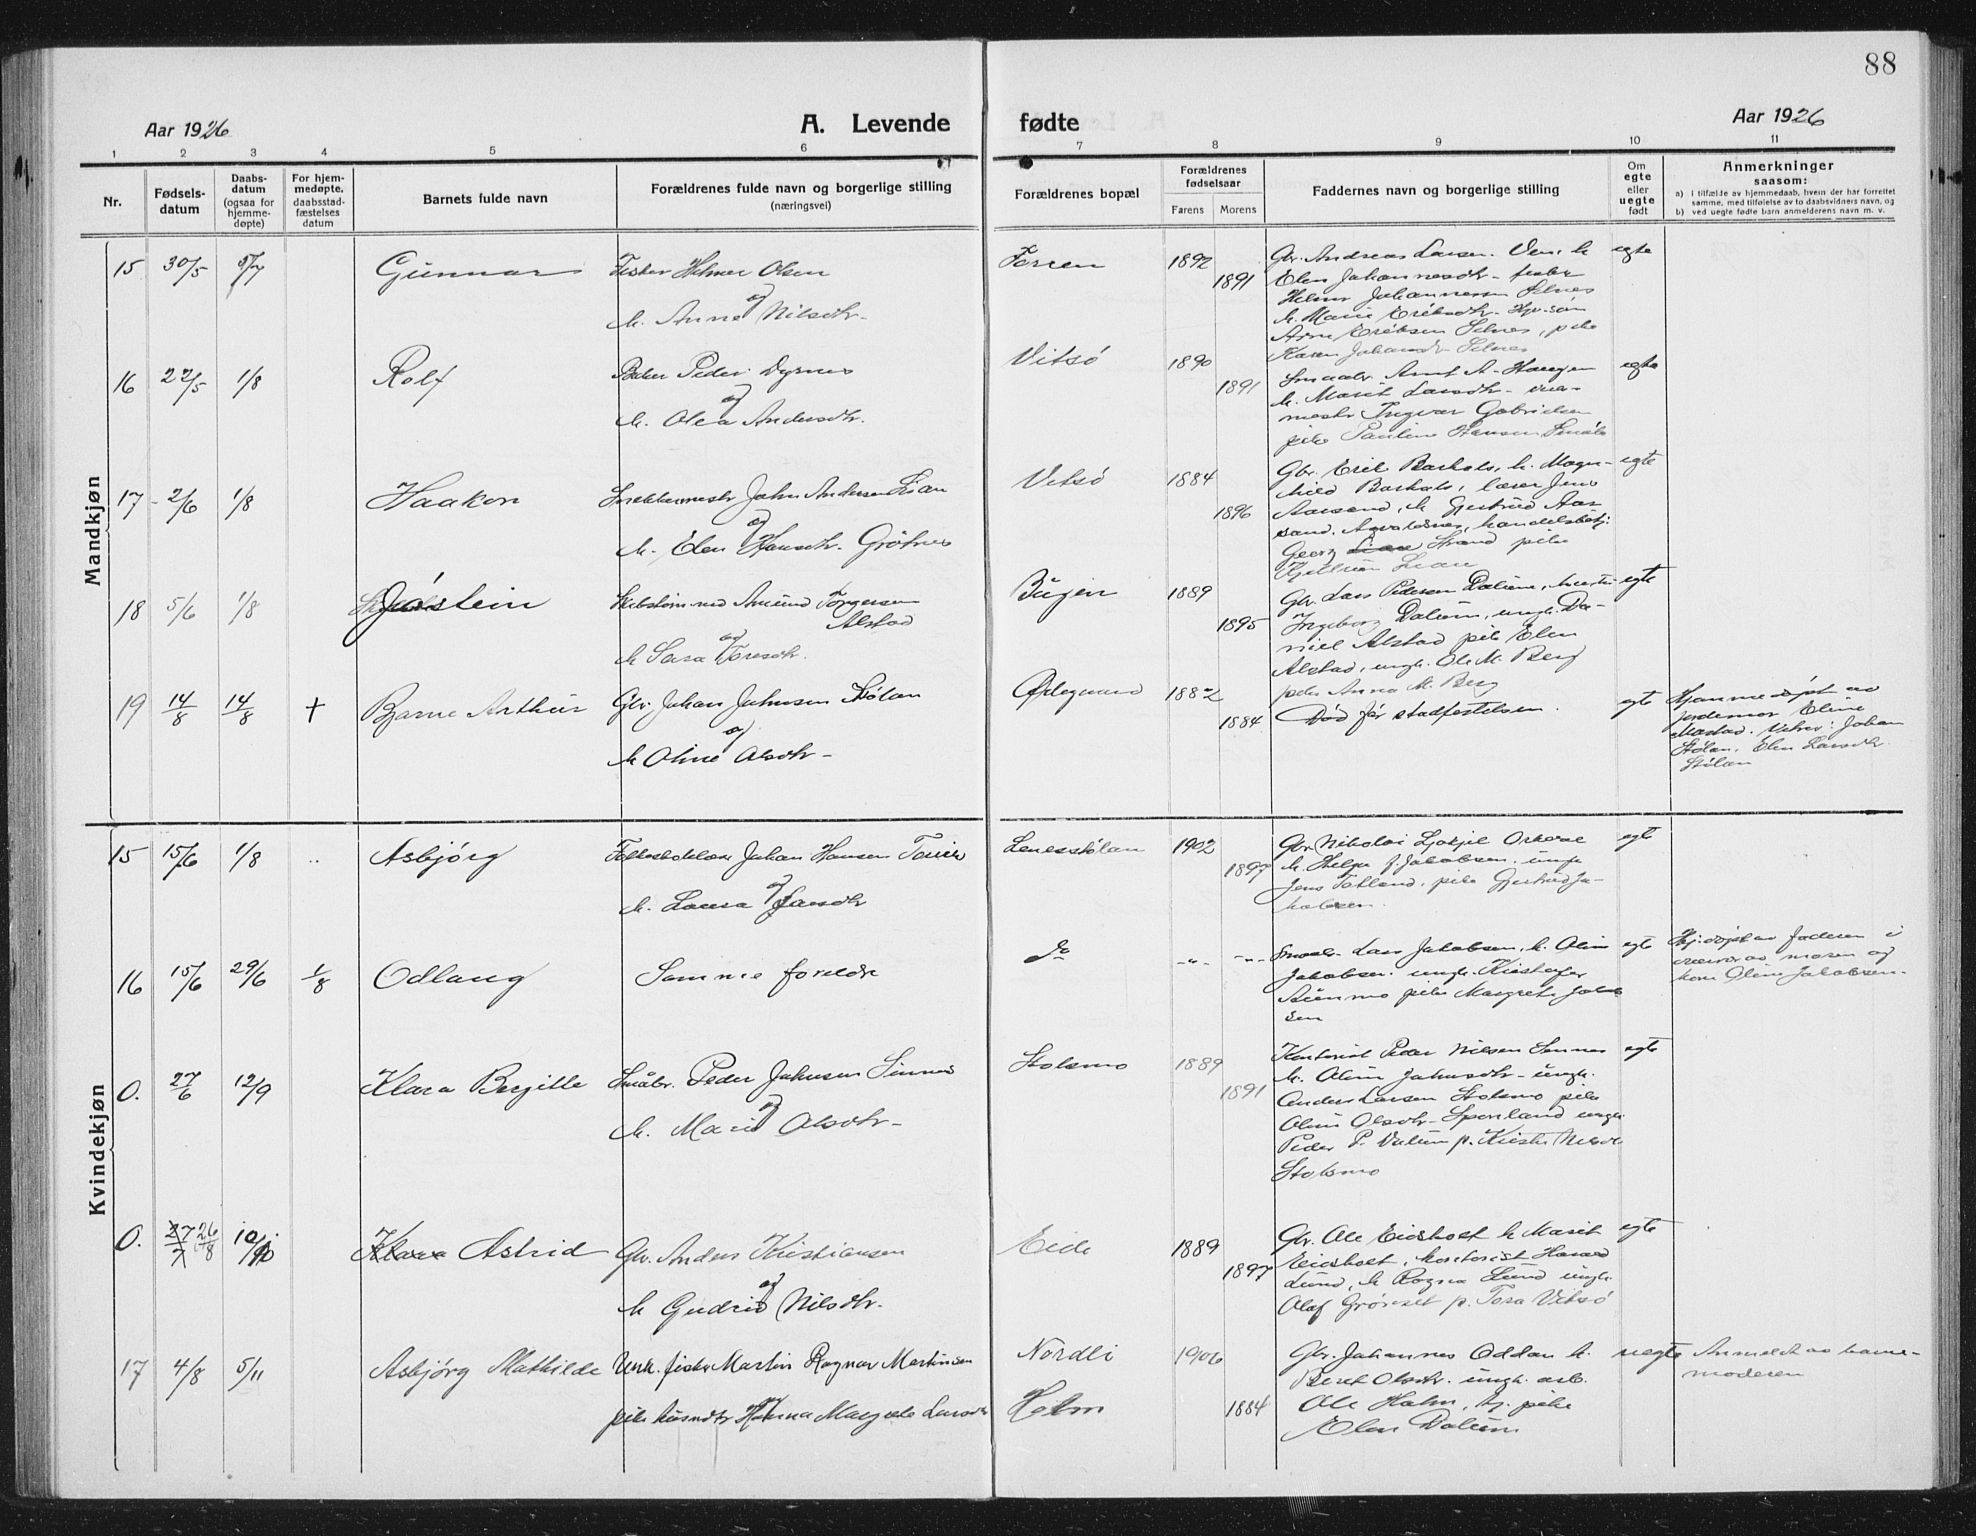 88
Aar 1926
A. Levende fødte
Aar 1926
1 2 3 4 5 6 7 8 9 10 11
Nr.
Fødsels-
datum
Daabs-
datum
(ogsaa for
hjemme-
døpte)
For hjem-
medøpte,
daabsstad-
fæstelses
datum
Barnets fulde navn
Forældrenes fulde navn og borgerlige stilling
(næringsvei)
Forældrenes bopæl
Forældrenes
fødselsaar
Farens Morens
Faddernes navn og borgerlige stilling
Om
egte
eller
uegte
født
Anmerkninger
saasom:
a) I tilfælde av hjemmedaab, hvem der har forrettet
samme, med tilføielse av to daabsvidners navn, og
b) ved uegte fødte barn anmelderens navn m. v.
Mandkjøn
15 30/5 Gunnar Fisker Helmer Olsen
og
h. Anne Nilsdtr.
Forren 1892 1891
Gbr. Andreas Larsen
Elen Johannesdtr.
Helmer Johannesen Selnes
h. Marie Eriksdtr.
Arne Eriksen Selnes, pike
Karen Johansdtr. Selnes
egte
16 22/5 1/8 Rolf Baker Peder Dyrnes
og
h. Olea Andersdtr.
Vitsø 1890 1891
Smaabr. Arnt A. Haugen
h. Marit Larsdtr.
Ingvar Gabrielsen
pike Pauline Hansen
egte
17 2/6 1/8 Haakon Snekkermestr John Andersen Lian
og
h. Elen Hansdtr. Grötnes
Vitsø 1884 1896
Gbr. Erik Barhals, h. Magn-
hild Barhals, lærer Jens
Aarsand, h. Gjertrud Aar-
sand, handelsbetj.
Georg Strand pike
Lian
egte
18 5/6 1/8 Jøstein Amund Torgersen
Alstad
og
h Sara Toresdtr.
Bugen 1889 1895
Gbr. Lars Pedersen Dalum, hustru
Ingeborg Dalum, ungk. Da-
niel Alstad pike Elen
Alstad, ungk. Ole M. Berg
pike Anna M. Berg
egte
19 14/8 14/8 + Bjarne Arthur Gbr. Johan Johnsen Stølan
og
h Oline Olsdtr.
Ødegaard 1882 1884
Død før stadfestelsen.
egte
Hjemmedøpt av
jordemor Eline
Mastad. Vitner: Johan
Stølan, Elen Larsdtr.
Stølan
Kvindekjøn
15 15/6 1/8 Asbjørg Johan Hansen
og
h. Laura Jansdtr
Lenesstølan 1902 1897
Gbr. Nikolai
h. Helga J. Jakobsen, ungk.
Jens Tetland, pike Gjertrud Ja-
kobsen.
egte
16 15/6 29/6 1/8 Odlaug Samme foreldr
do -"- -"-
Smaabr. Lars Jakobsen, h. Oline
Jakobsen, ungk. Kristofer
Aunmo pike Margrete Jakob-
sen
egte
Hj.døpt av faderen i
nærvær av moren og
kone Oline Jakobsen.
0. 27/6 12/9 Klara Bergitte Småbr. Peder Johnsen Sinnes
og
h. Marie Olsdtr.
Stolsmo 1889 1891
Kontorist Peder Nilsen Sinnes
h. Oline Johnsdtr. ungk.
Anders Larsen Stolsmo pike
Oline Olsdtr. ungk.
Peder P. Dalum p. Kirsti Nilsdtr
Stolsmo
egte
0. 27/7 26/8 10/10 Klara Astrid Gbr. Anders Kristiansen
og
h Gudrid Nilsdtr.
Eide 1889 1897
Gbr. Ole Eidsholt h Marit
Eidsholt, kontorist Harald
Lund, h Ragna Lund ungk.
Olaf Grønset p. Tora Vitsø
egte
17 4/8 5/11 Asbjørg Mathilde Unk. fisker Martin Ragnar Martinsen
og
pike Hanna Margrete Larsdtr
Nordli
Holm
1906 1884
Gbr. Johannes Oddan h.
Beret Olsdtr. ungk. arb.
Ole Holm, pike
Elen Dalum
uegte
Anmeldt av barne-
moderen